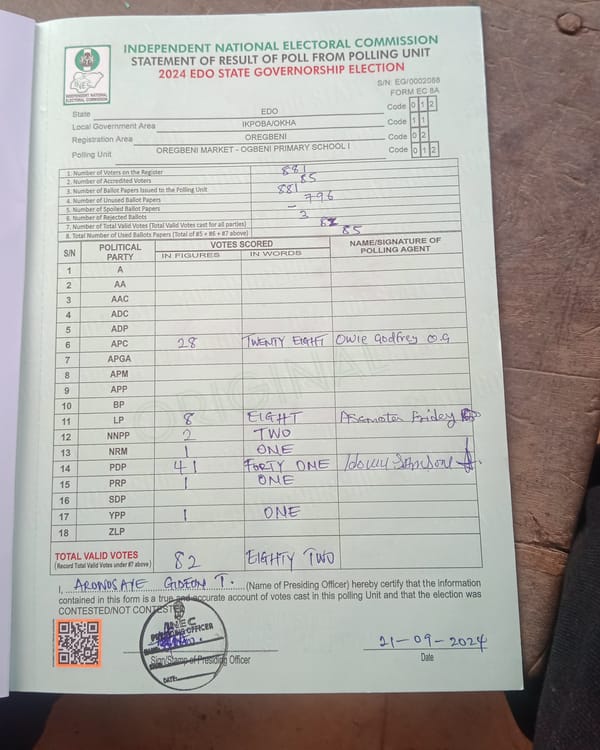 INDEPENDENT NATIONAL ELECTORAL COMMISSION
STATEMENT OF RESULT OF POLL FROM POLLING UNIT
2024 EDO STATE GOVERNORSHIP ELECTION
INEC
INDEPENDENT NATIONAL
ELECTORAL COMMISSION
S/N: EG/0002088
FORM EC 8A
State EDO Code 0 1 2
Local Government Area IKPOBA/OKHA Code 1 1
Registration Area OREGBENI Code 0 2
Polling Unit OREGBENI MARKET - OGBENI PRIMARY SCHOOL I Code 0 1 2
1. Number of Voters on the Register 881
2. Number of Accredited Voters 85
3. Number of Ballot Papers Issued to the Polling Unit 881
4. Number of Unused Ballot Papers 796
5. Number of Spoiled Ballot Papers –
6. Number of Rejected Ballots 3
7. Number of Total Valid Votes (Total Valid Votes cast for all parties) 82
8. Total Number of Used Ballots Papers (Total of #5 + #6 + #7 above) 85
S/N POLITICAL PARTY VOTES SCORED NAME/SIGNATURE OF POLLING AGENT
IN FIGURES IN WORDS
1 A
2 AA
3 AAC
4 ADC
5 ADP
6 APC 28 TWENTY EIGHT Owie Godfrey O.G
7 APGA
8 APM
9 APP
10 BP
11 LP 8 EIGHT Friday
12 NNPP 2 TWO
13 NRM 1 ONE
14 PDP 41 FORTY ONE
15 PRP 1 ONE
16 SDP
17 YPP 1 ONE
18 ZLP
ORIGINAL
TOTAL VALID VOTES 82 EIGHTY TWO
(Record Total Valid Votes under #7 above)
I, ARONOSAYE GIDEON T. (Name of Presiding Officer) hereby certify that the information
contained in this form is a true and accurate account of votes cast in this polling Unit and that the election was
CONTESTED/NOT CONTESTED
INEC
PRESIDING OFFICER
DATE:
21-09-2024
Sign/Stamp of Presiding Officer Date